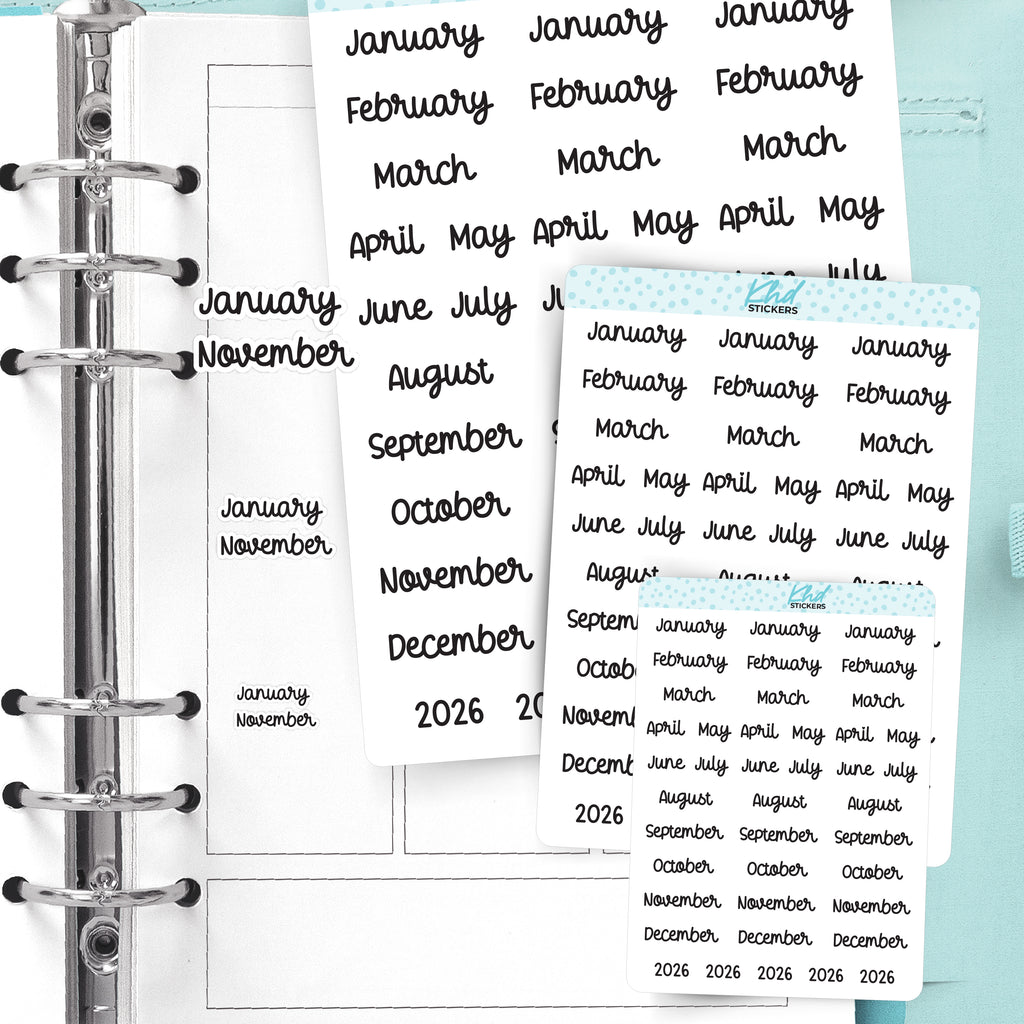 January January January
February February February
March March March
April May April May April May
June July
August
September
October
November
December
2026
January
November
January
November
January
November
Khd
STICKERS
January January January
February February February
March March March
April May April May April May
June July June July June July
August August August
2026
Khd
STICKERS
January January January
February February February
March March March
April May April May April May
June July June July June July
August August August
September September September
October October October
November November November
December December December
2026 2026 2026 2026 2026